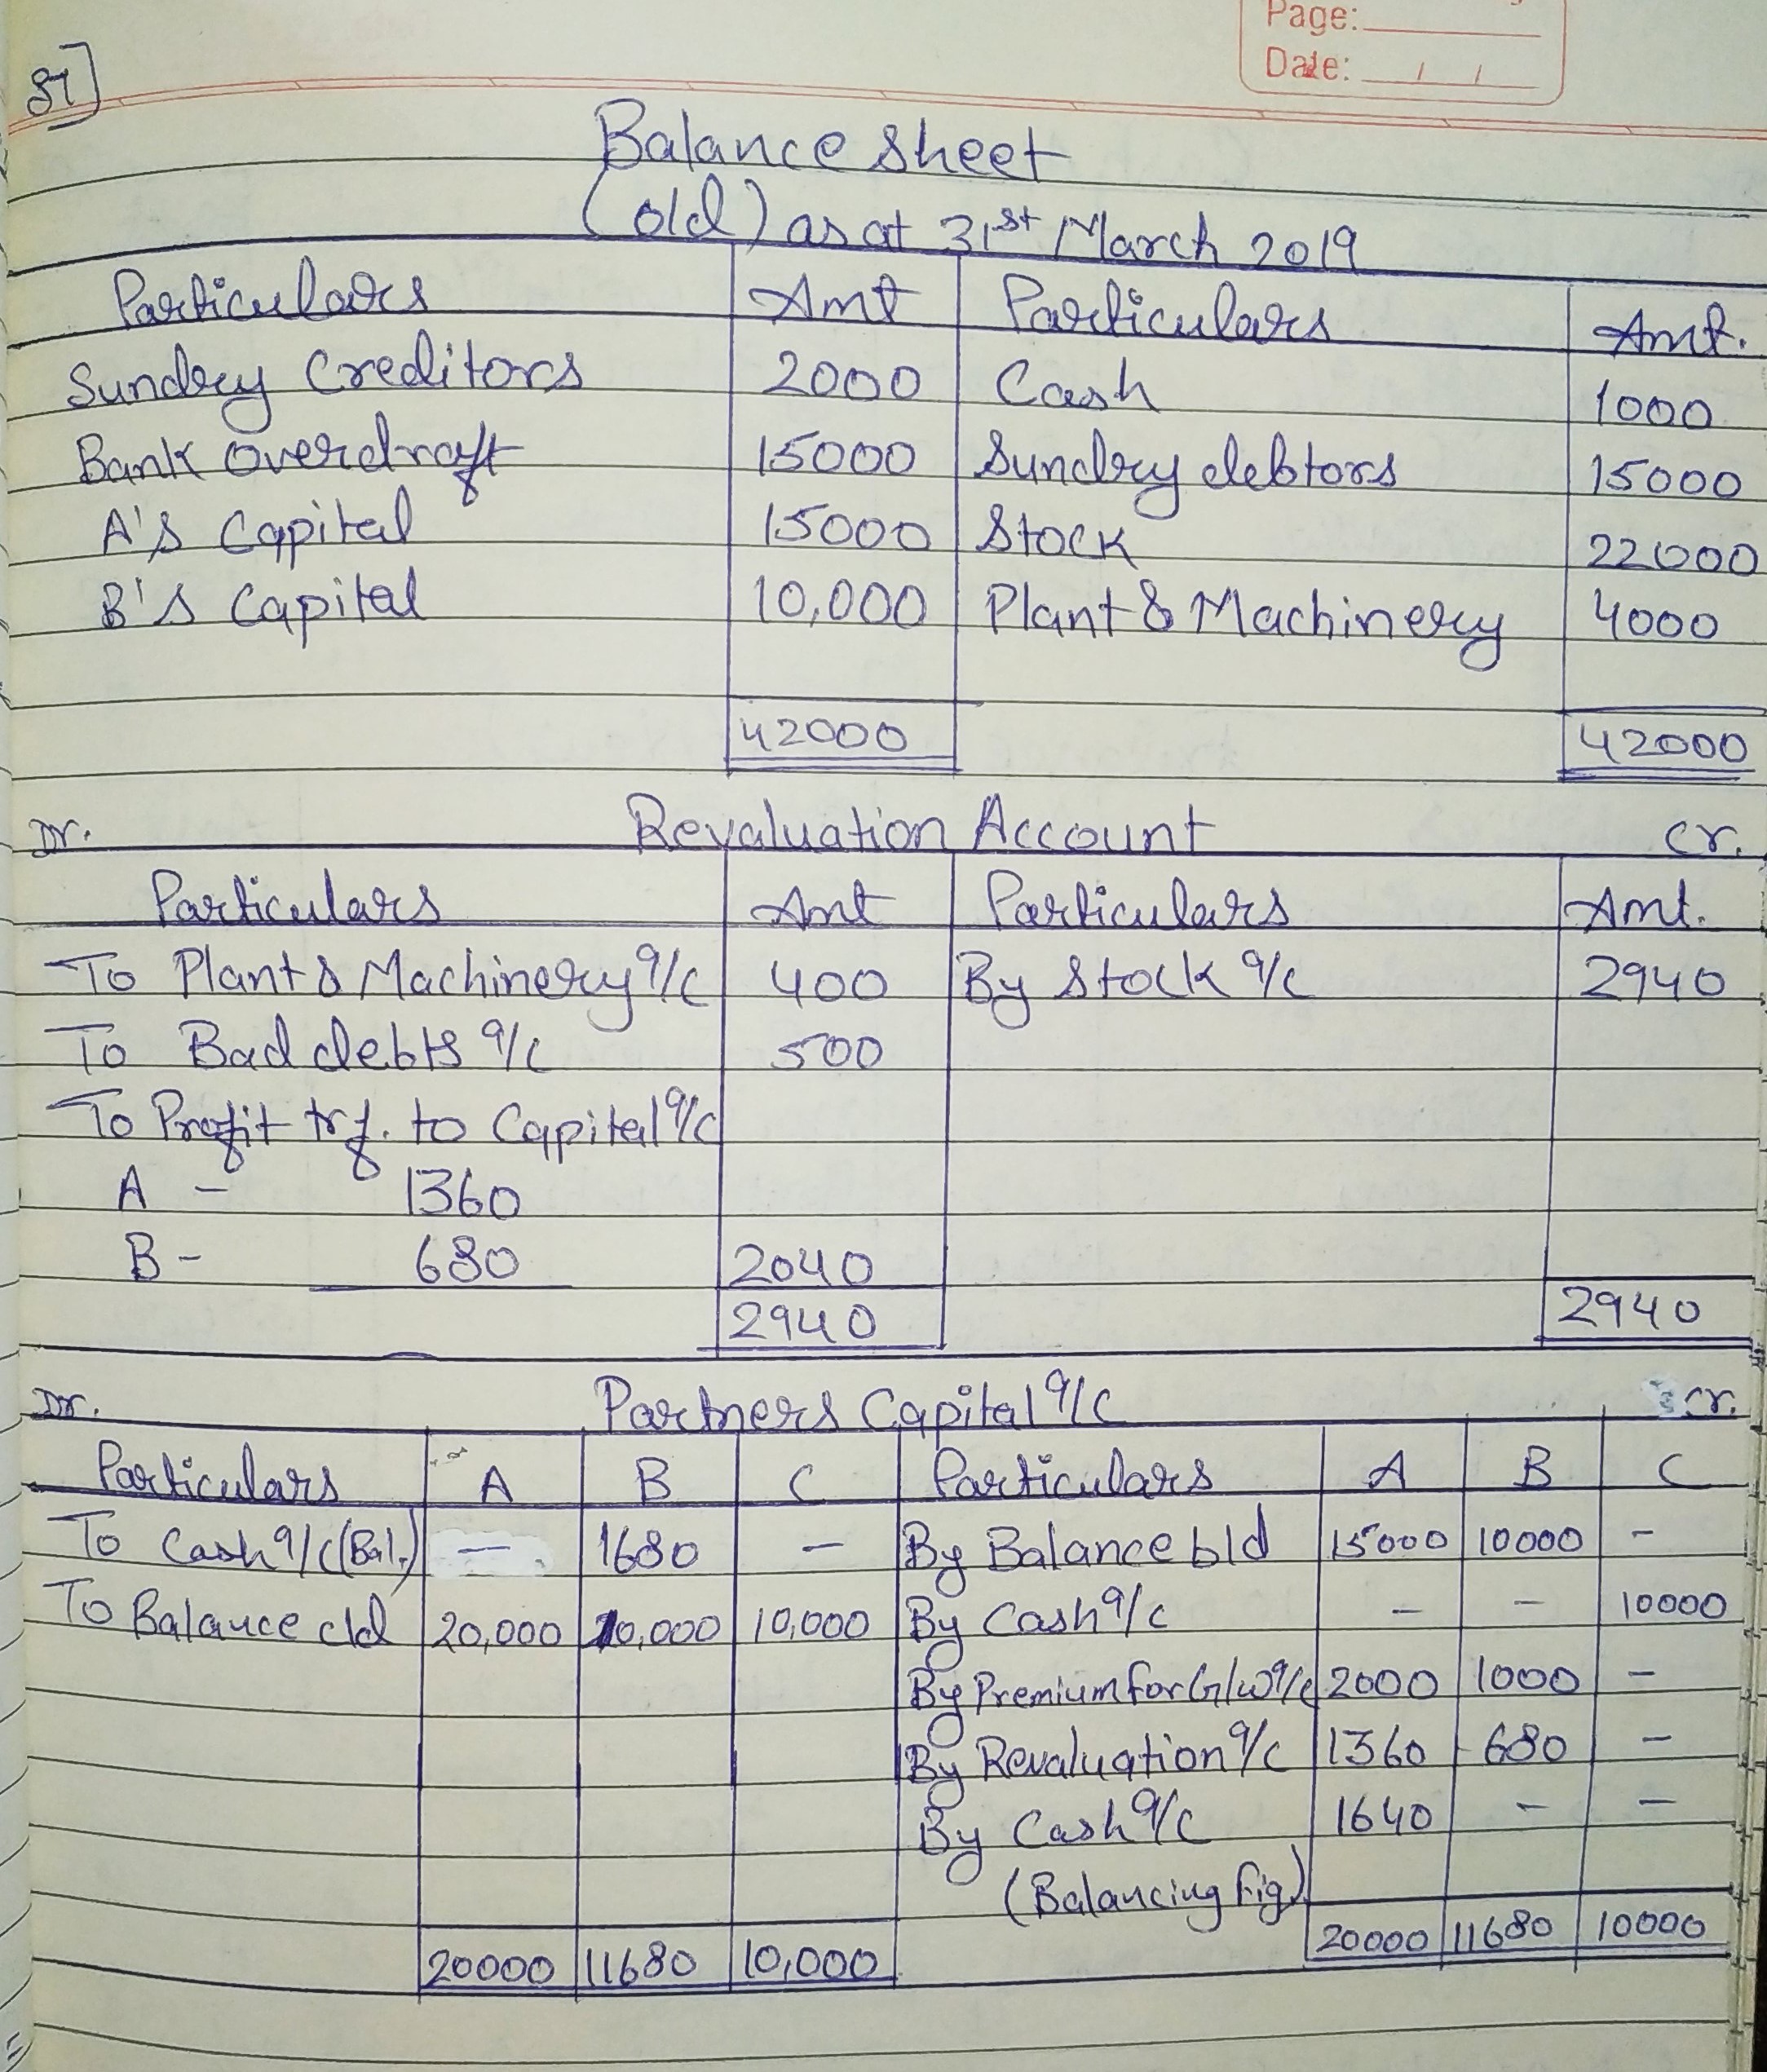 Page:
Date: / /
Balance sheet
(old) as at 31st March 2019
Particulars Amt Particulars Amt.
Sundry Creditors 2000 Cash 1000
Bank overdraft 15000 Sundry debtors 15000
A's Capital 15000 Stock 22000
B's Capital 10,000 Plant & Machinery 4000
42000 42000
Dr. Revaluation Account Cr.
Particulars Amt Particulars Amt.
To Plant & Machinery a/c 400 By Stock a/c 2940
To Bad debts a/c 500
To Profit trf. to Capital a/c
A - 1360
B - 680 2040
2940 2940
Dr. Partners Capital a/c cr.
Particulars A B C Particulars A B C
To Cash a/c (Bal.) — 1680 — By Balance b/d 15000 10000 -
To Balance c/d 20,000 10,000 10,000 By Cash a/c - - 10000
By Premium for G/w a/c 2000 1000 -
By Revaluation a/c 1360 680 -
By Cash a/c 1640 - -
(Balancing fig)
20000 11680 10,000 20000 11680 10000